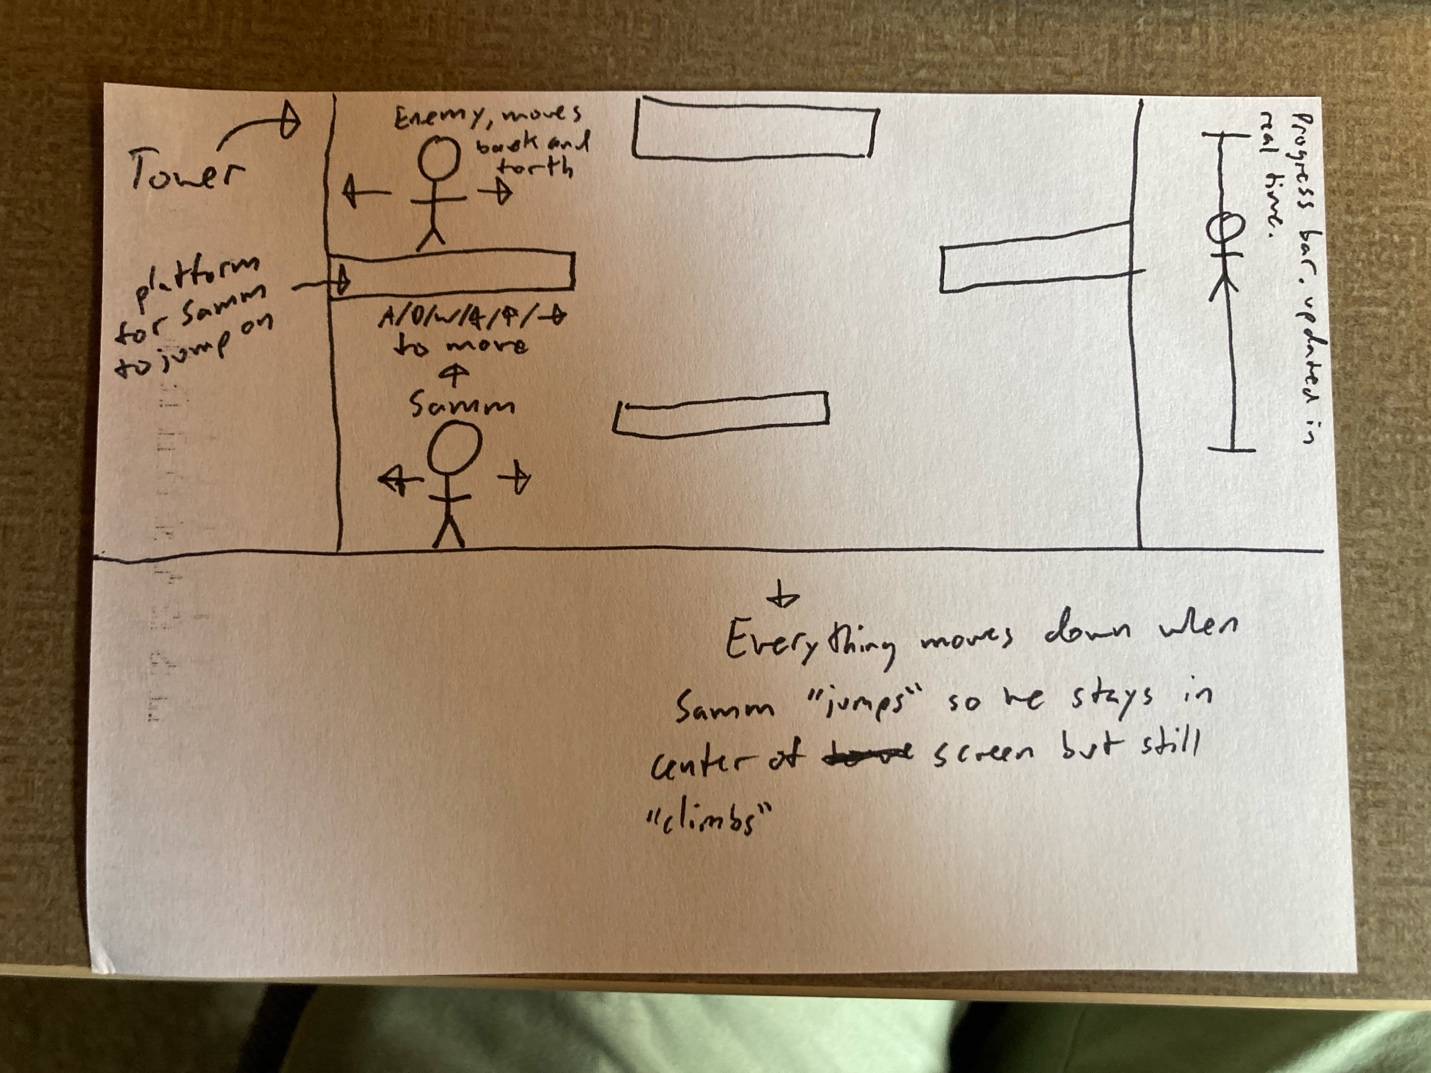 Tower
Enemy, moves
back and
forth
platform
for Samm
to jump on
A/D/W/←/↑/→
to move
Samm
Progress bar, updated in
real time.
Everything moves down when
Samm "jumps" so he stays in
center of screen but still
"climbs"